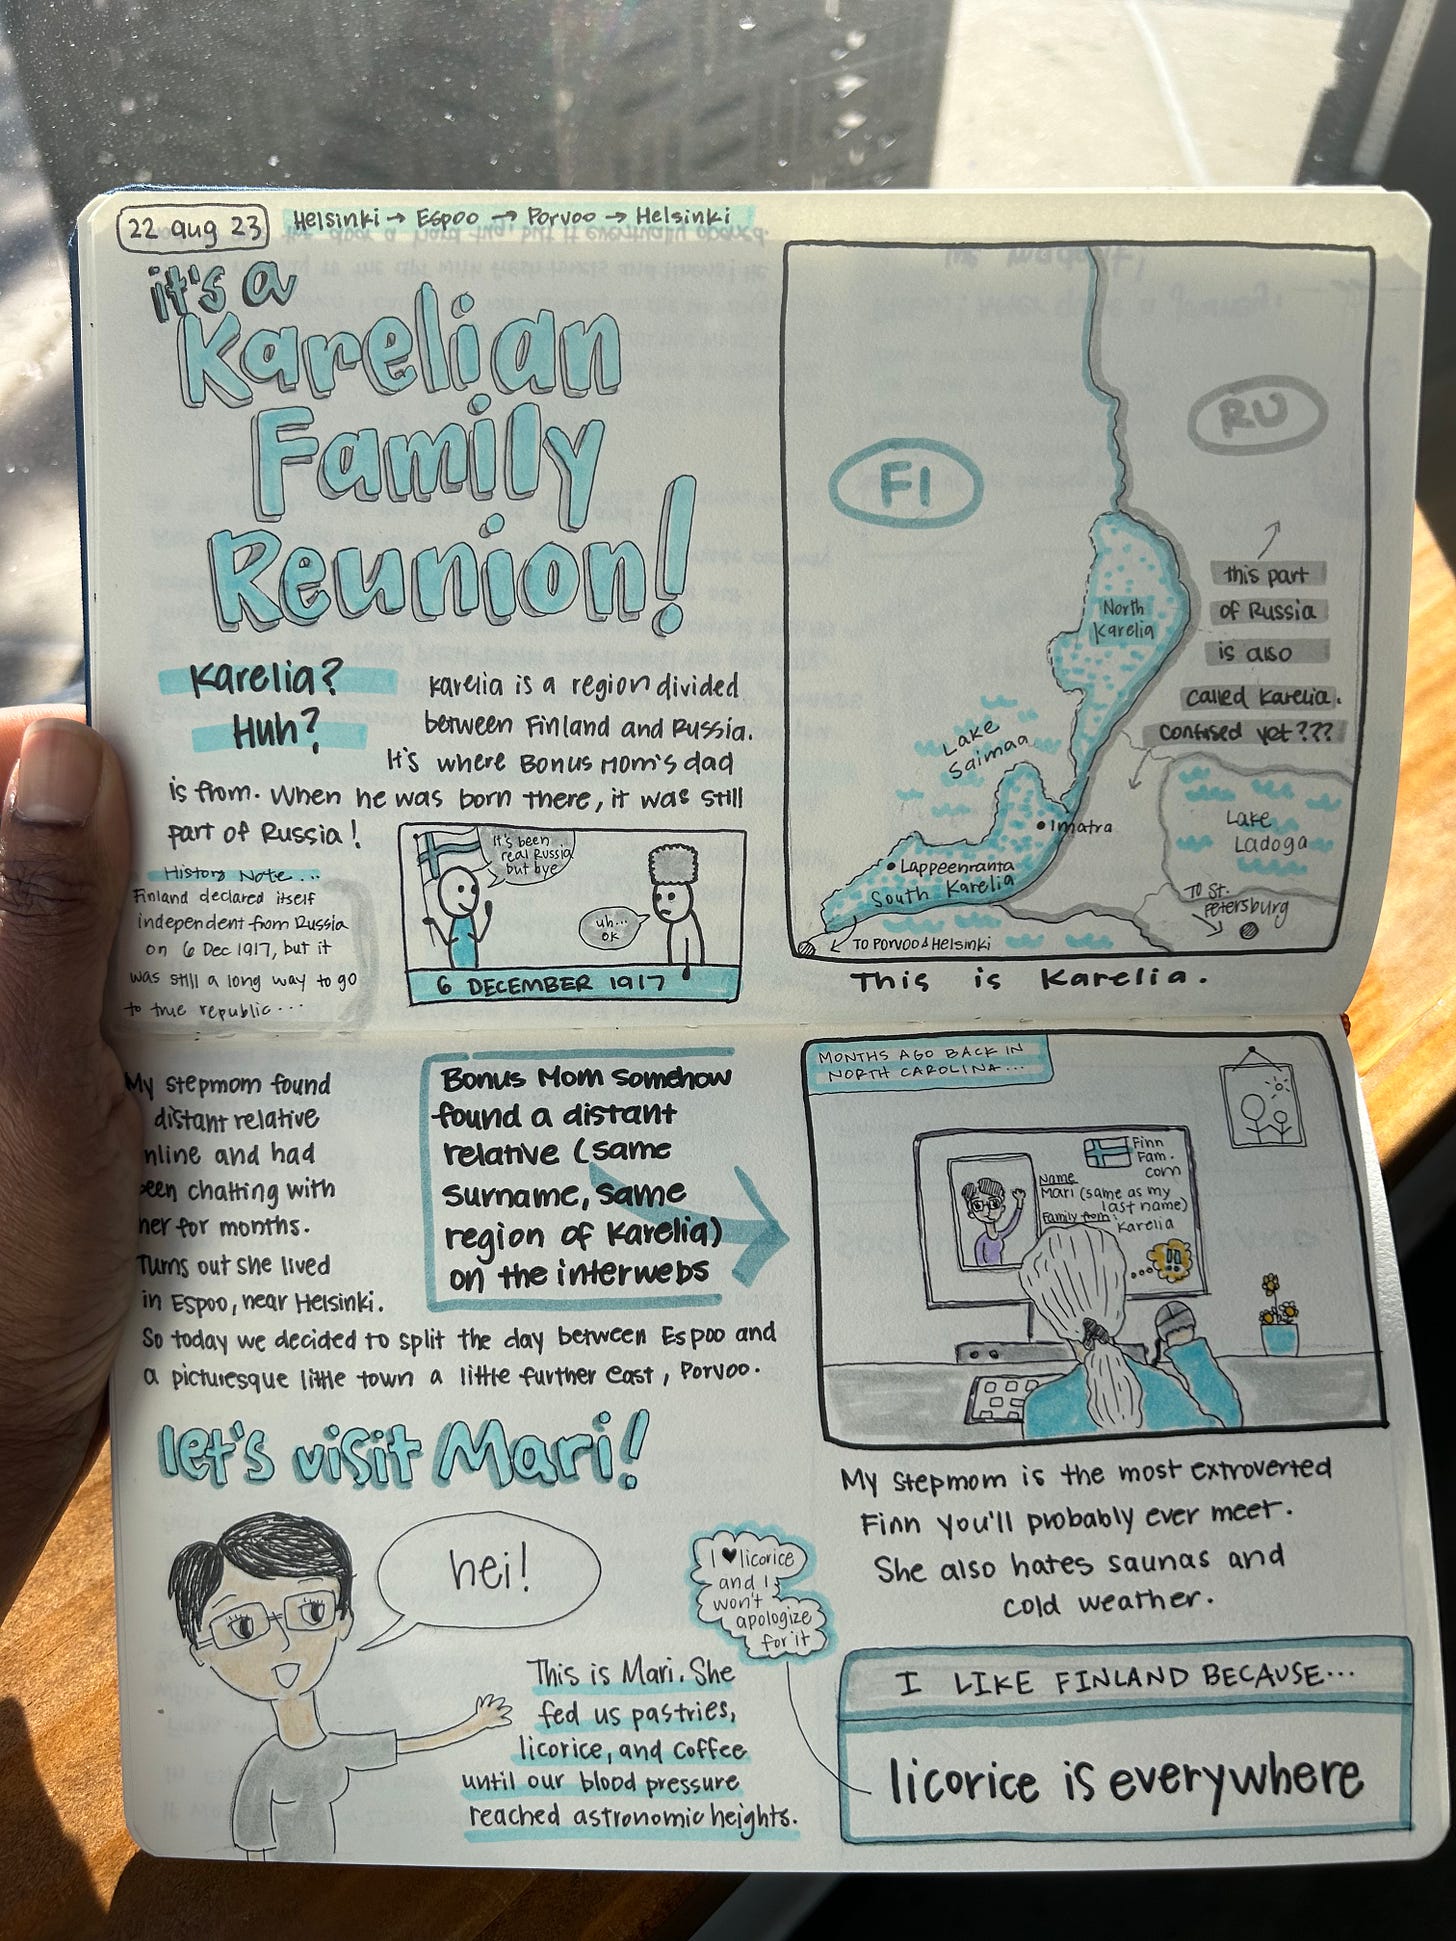 22 aug 23
Helsinki → Espoo → Porvoo → Helsinki
it's a
Karelian
Family
Reunion!
Karelia?
Huh?
Karelia is a region divided
between Finland and Russia.
It's where Bonus Mom's dad
is from. When he was born there, it was still
part of Russia!
History Note...
Finland declared itself
independent from Russia
on 6 Dec 1917, but it
was still a long way to go
to true republic...
It's been
real Russia
but bye
uh...
ok
6 DECEMBER 1917
FI
RU
North
Karelia
this part
of Russia
is also
called Karelia.
confused yet???
Lake
Saimaa
Imatra
Lappeenranta
South Karelia
Lake
Ladoga
To St.
Petersburg
To Porvoo & Helsinki
This is Karelia.
My stepmom found
distant relative
nline and had
een chatting with
her for months.
Turns out she lived
in Espoo, near Helsinki.
So today we decided to split the day between Espoo and
a picturesque little town a little further east, Porvoo.
Bonus Mom somehow
found a distant
relative (same
surname, same
region of Karelia)
on the interwebs
MONTHS AGO BACK IN
NORTH CAROLINA...
Finn
Fam.
com
Name
Mari (same as my
last name)
Family from:
Karelia
!!
let's visit Mari!
hei!
This is Mari. She
fed us pastries,
licorice, and coffee
until our blood pressure
reached astronomic heights.
My stepmom is the most extroverted
Finn you'll probably ever meet.
She also hates saunas and
cold weather.
I ♥ licorice
and I
won't
apologize
for it
I LIKE FINLAND BECAUSE...
licorice is everywhere